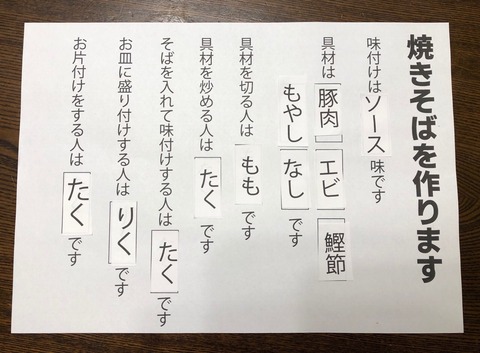 焼きそばを作ります
味付けはソース味です
具材は豚肉エビ鰹節
もやしなしです
具材を切る人はももです
具材を炒める人はたくです
そばを入れて味付けする人はたくです
お皿に盛り付けする人はりくです
お片付けをする人はたくです